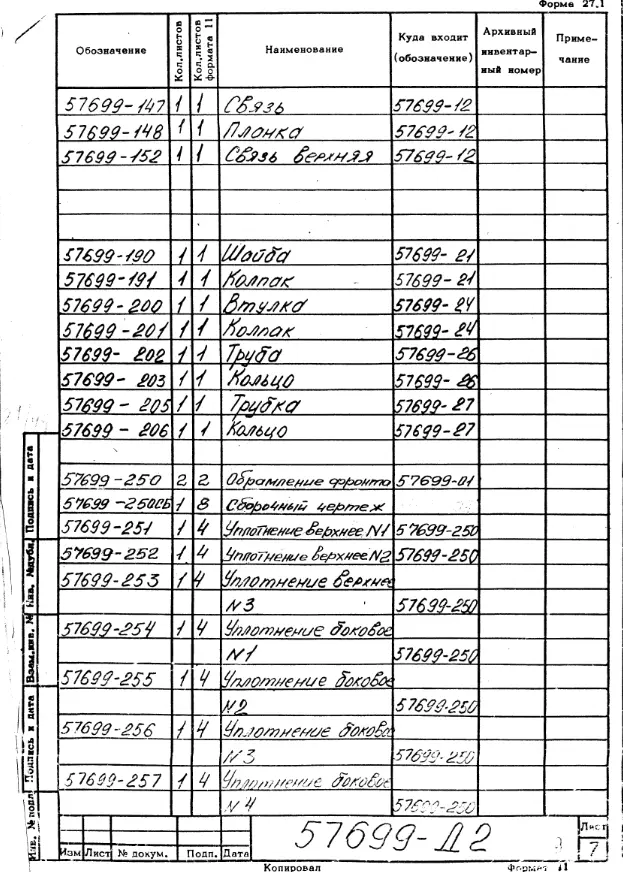 Форма 27.1
Обозначение Кол.листов Кол.листов формата 11 Наименование Куда входит (обозначение) Архивный инвентар-ный номер Приме-чание
57699-147 1 1 Связь 57699-12
57699-148 1 1 Планка 57699-12
57699-152 1 1 Связь верхняя 57699-12
57699-190 1 1 Шайба 57699-21
57699-191 1 1 Колпак 57699-21
57699-200 1 1 Втулка 57699-24
57699-201 1 1 Колпак 57699-24
57699-202 1 1 Труба 57699-26
57699-203 1 1 Кольцо 57699-26
57699-205 1 1 Трубка 57699-27
57699-206 1 1 Кольцо 57699-27
57699-250 2 2 Обрамление фронта 57699-01
57699-250СБ 1 8 Сборочный чертеж
57699-251 1 4 Уплотнение верхнее N1 57699-250
57699-252 1 4 Уплотнение верхнее N2 57699-250
57699-253 1 4 Уплотнение верхнее
N3 57699-250
57699-254 1 4 Уплотнение боковое
N1 57699-250
57699-255 1 4 Уплотнение боковое
N2 57699-250
57699-256 1 4 Уплотнение боковое
N3 57699-250
57699-257 1 4 Уплотнение боковое
N4 57699-250
Подпись и дата
Инв. №дубл.
Взам.инв. №
Подпись и дата
Инв. №подл
Изм Лист № докум. Подп. Дата
57699-Д2
Лист
7
Копировал Формат 11